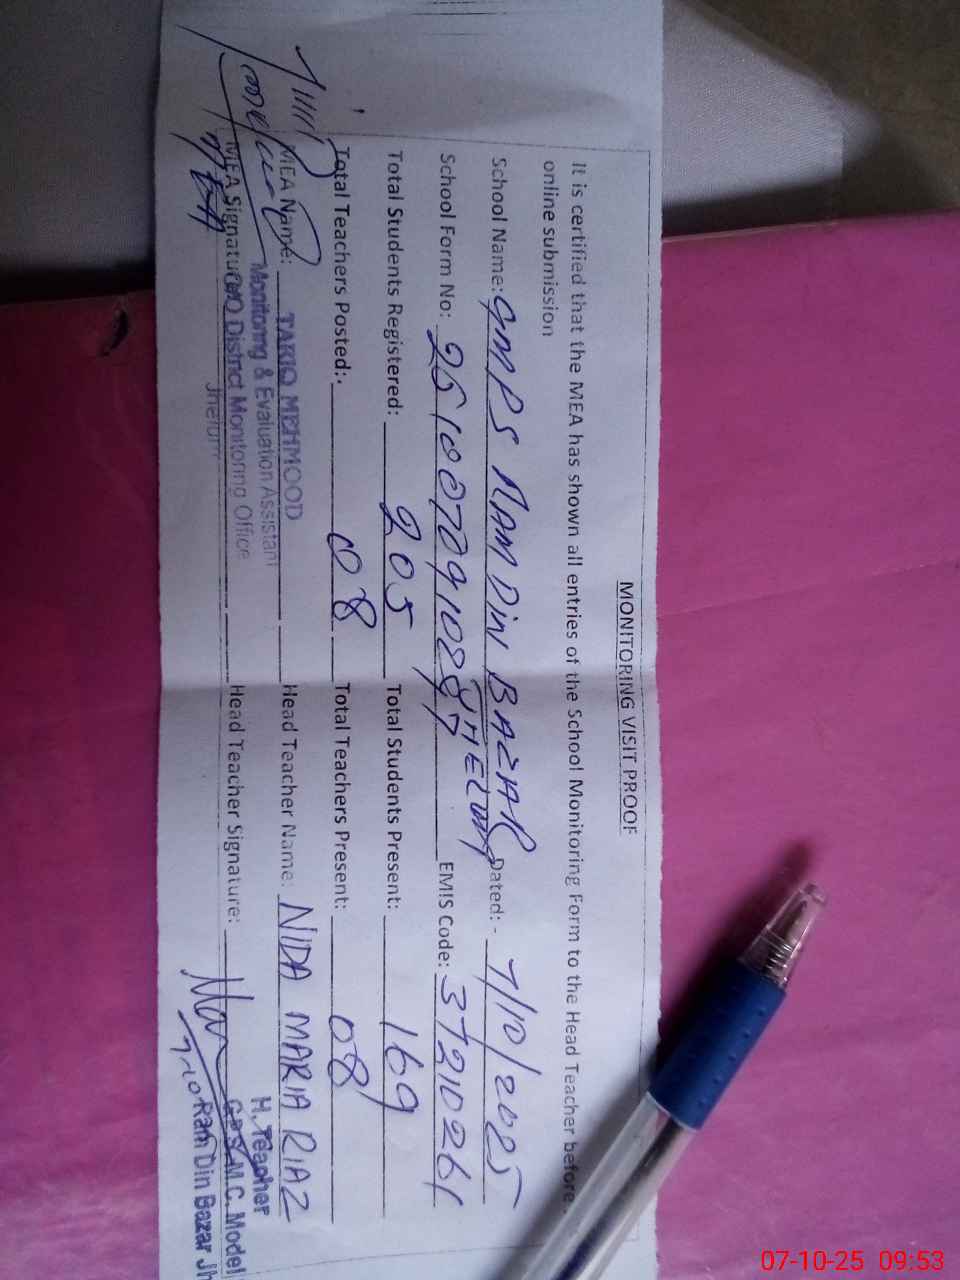 MONITORING VISIT PROOF
It is certified that the MEA has shown all entries of the School Monitoring Form to the Head Teacher before
online submission
School Name: GMPS RAM DIN BAZAR JHELUM Dated: - 7/10/2025
School Form No: EMIS Code: 37210261
Total Students Registered: 205 Total Students Present: 169
Total Teachers Posted: 08 Total Teachers Present: 08
MEA Name: TARIQ MEHMOOD Head Teacher Name: NIDA MARIA RIAZ
Monitoring & Evaluation Assistant
MEA Signature: O/O District Monitoring Office Head Teacher Signature:
Jhelum
H. Teacher
M.C. Model
Ram Din Bazar Jh
07-10-25 09:53